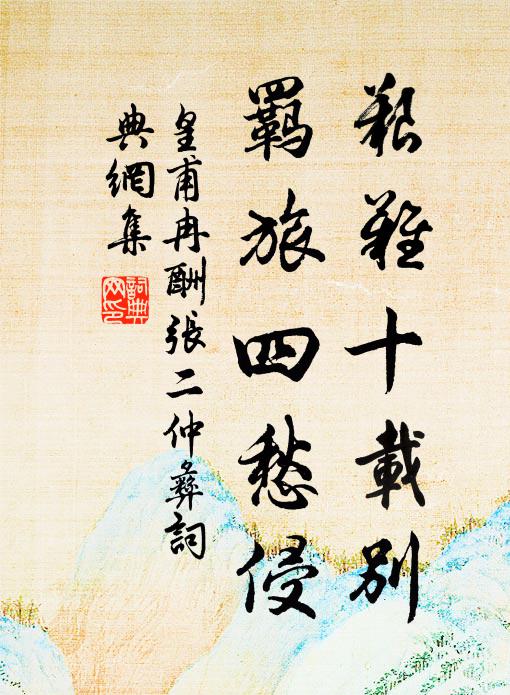 艱難十載別
羈旅四愁侵
皇甫冉酬張二仲彝詞
典網集
詞典網印